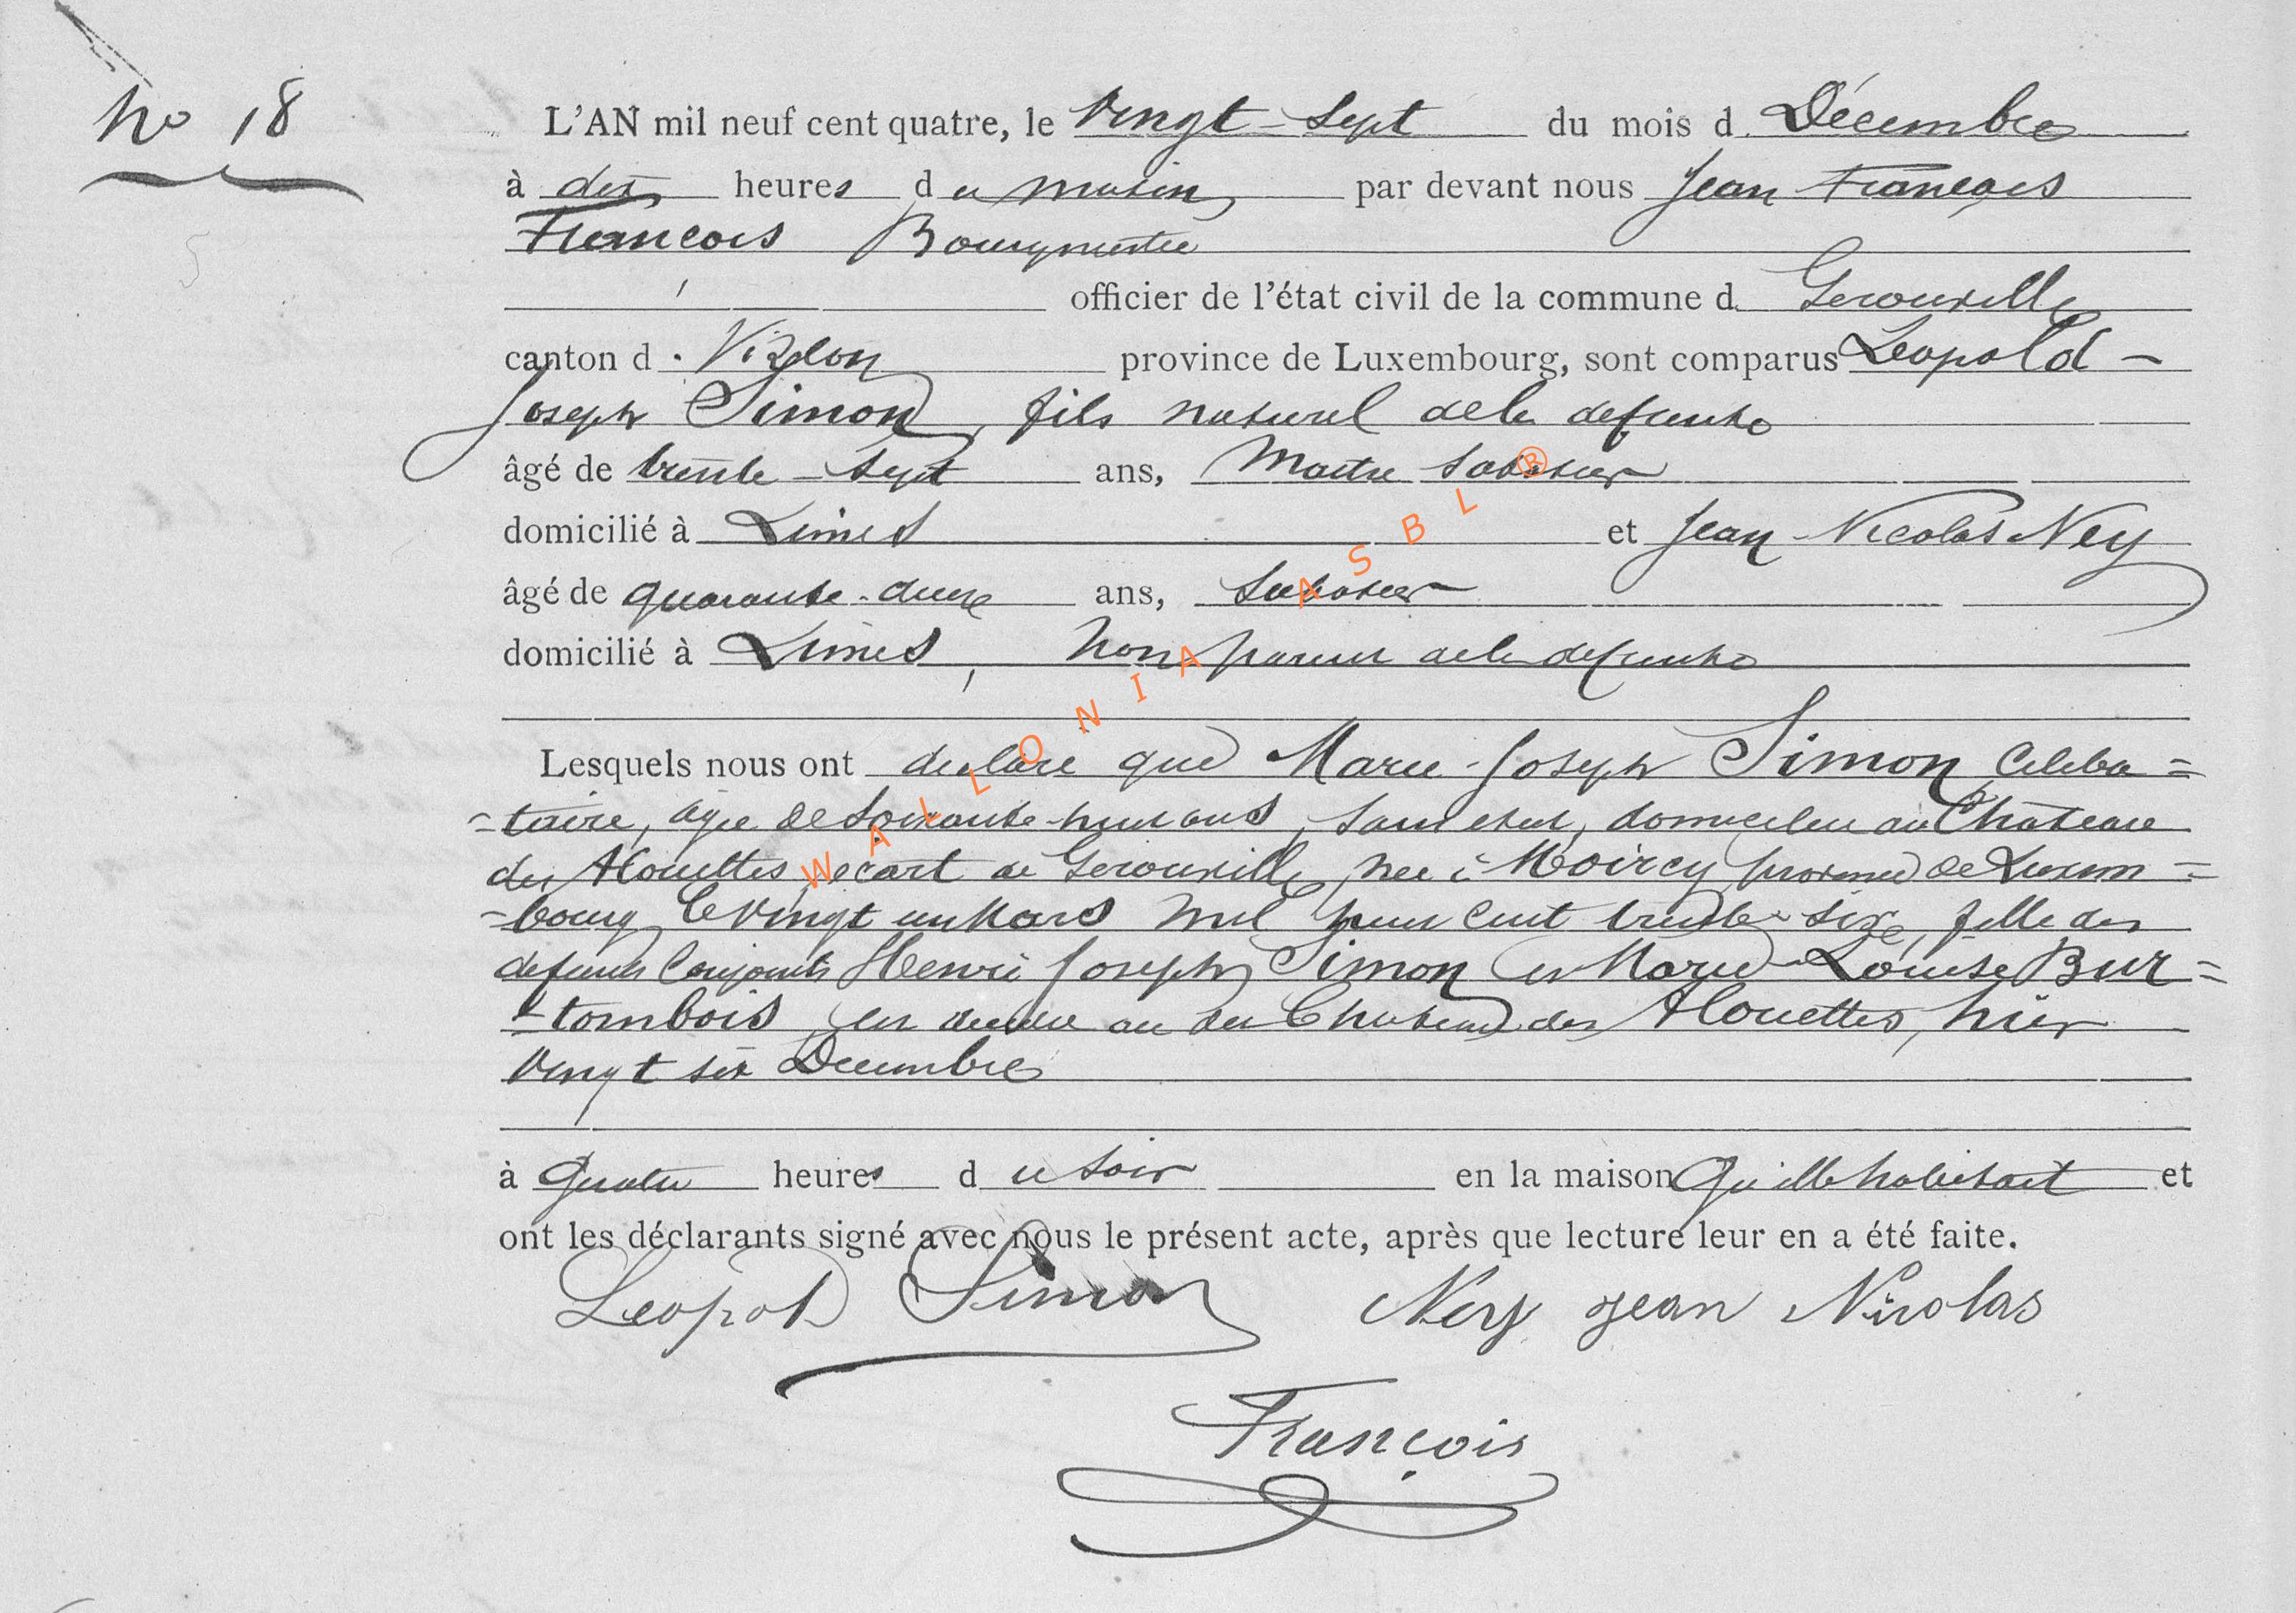 No 18
L'AN mil neuf cent quatre, le Vingt-Sept du mois d Décembre
à dix heures du matin par devant nous Jean François
François Bourgmestre
officier de l'état civil de la commune d Gerouville
canton d Virton province de Luxembourg, sont comparus Leopold-
Joseph Simon, fils naturel de la defunte
âgé de trente-sept ans, Maitre Sabotier
domicilié à Limes et Jean Nicolas Ney
âgé de quarante-deux ans, Sabotier
domicilié à Limes, non parent de la defunte
Lesquels nous ont declaré que Marie-Joseph Simon, Céliba=
=taire, agée de Soixante-huit ans, sans etat, domiciliée au Château
des Alouettes, ecart de Gerouville, née à Moircy province de Luxem=
=bourg le vingt un Mars mil huit cent trente-six, fille des
defunts conjoints Henri Joseph Simon et Marie-Louise Bur=
=tombois, est décédée au dit Chateau des Alouettes, hier
vingt six Decembre
à quatre heures du soir en la maison qu'elle habitait et
ont les déclarants signé avec nous le présent acte, après que lecture leur en a été faite.
Leopold Simon Ney Jean Nicolas
François
WALLONIA ASBL ®